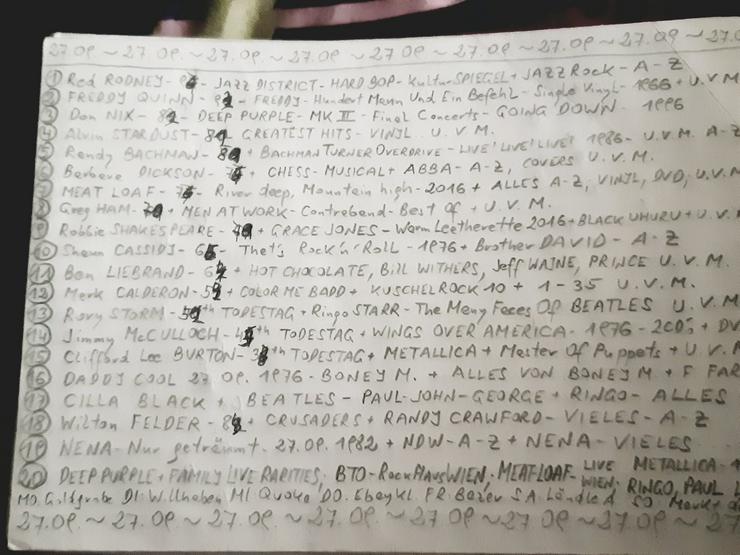 27.09 ~ 27.09. ~ 27.09. ~ 27.09 ~ 27 09 ~ 27.09. ~ 27.09 ~ 27.0
① Red RODNEY - JAZZ DISTRICT - HARD BOP - KulturSPIEGEL + JAZZ Rock - A - Z
② FREDDY QUINN - FREDDY - Hundert Mann Und Ein Befehl - Single Vinyl - 1966 + U.V.M
③ Don NIX - DEEP PURPLE - MK III - Final Concerts - GOING DOWN - 1996
④ Alvin STARDUST - GREATEST HITS - VINYL. U. V. M.
⑤ Randy BACHMAN - + BACHMAN TURNER OVERDRIVE - LIVE! LIVE! LIVE! 1986 - U.V.M. A-Z
⑥ Barbara DICKSON - + CHESS - MUSICAL + ABBA - A-Z, COVERS U. V. M.
⑦ MEAT LOAF - River deep, Mountain high - 2016 + ALLES A-Z, VINYL, DVD, U.V.M
⑧ Greg HAM - + MEN AT WORK - Contraband - Best Of + U.V.M.
⑨ Robbie SHAKESPEARE - + GRACE JONES - Warm Leatherette 2016 + BLACK UHURU + U.V.
⑩ Shaun CASSIDY - That's Rock'n'Roll - 1976 + Brother DAVID - A - Z
⑪ Ben LIEBRAND - + HOT CHOCOLATE, BILL WITHERS, Jeff WAYNE, PRINCE U.V.M.
⑫ Mark CALDERON - + COLOR ME BADD + KUSCHELROCK 10 + 1 - 35 U.V.M.
⑬ Rory STORM - TODESTAG + Ringo STARR - The Many Faces Of BEATLES U.V.M
⑭ Jimmy McCULLOCH - th TODESTAG + WINGS OVER AMERICA - 1976 - 2CD's + DV
⑮ Clifford Lee BURTON - th TODESTAG + METALLICA + Master Of Puppets + U.V.M
⑯ DADDY COOL 27 09. 1976 - BONEY M. + ALLES VON BONEY M + F FAR
⑰ CILLA BLACK + BEATLES - PAUL - JOHN - GEORGE + RINGO - ALLES
⑱ Wilton FELDER - + CRUSADERS + RANDY CRAWFORD - VIELES - A - Z
⑲ NENA - Nur geträumt. 27.09. 1982 + NDW - A-Z + NENA - VIELES
⑳ DEEP PURPLE + FAMILY LIVE RARITIES, BTO - RockHausWIEN, MEATLOAF - LIVE WIEN, METALLICA - RINGO, PAUL
MO. DI. Willhaben MI Quoka DO. EbayKl. FR Bazar SA Ländle SO
27.09. ~ 27.09. ~ 27.09. ~ 27.09. ~ 27.09. ~ 27.09 ~ 27.09 ~ 27